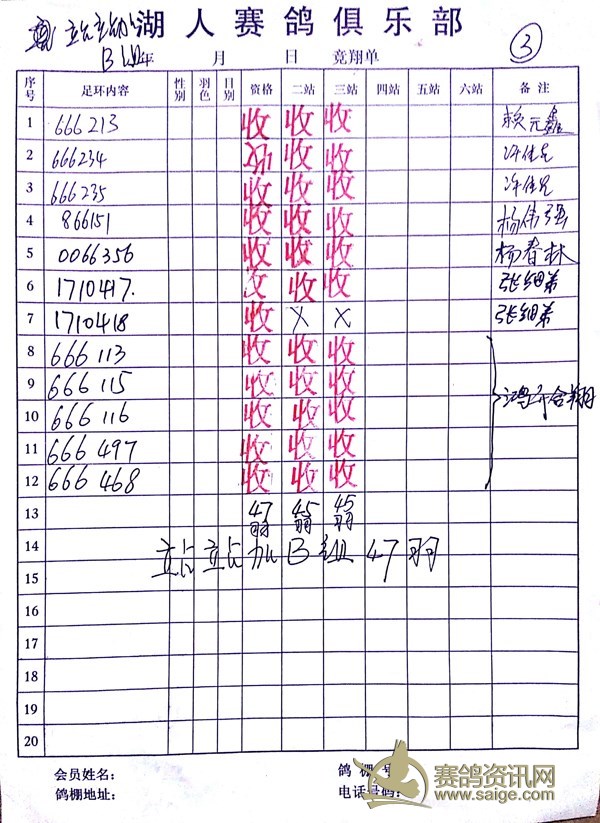 站站加 湖人赛鸽俱乐部
B组 年 月 日 竞翔单 ③
序号 足环内容 性别 羽色 目别 资格 二站 三站 四站 五站 六站 备注
1 666213 收 收 收
2 666234 收 收 收 许佳兄
3 666235 收 收 收 许佳兄
4 866151 收 收 收 杨伟强
5 0066356 收 收 收 杨春林
6 1710417. 收 收 收 张细弟
7 1710418 收 X X 张细弟
8 666 113 收 收 收
9 666 115 收 收 收
10 666 116 收 收 收
11 666 497 收 收 收
12 666 468 收 收 收
13 47羽 45羽 45羽
14 站站加B组47羽
15
16
17
18
19
20
会员姓名: 鸽棚号
鸽棚地址: 电话号码:
赛鸽资讯网
www.saige.com